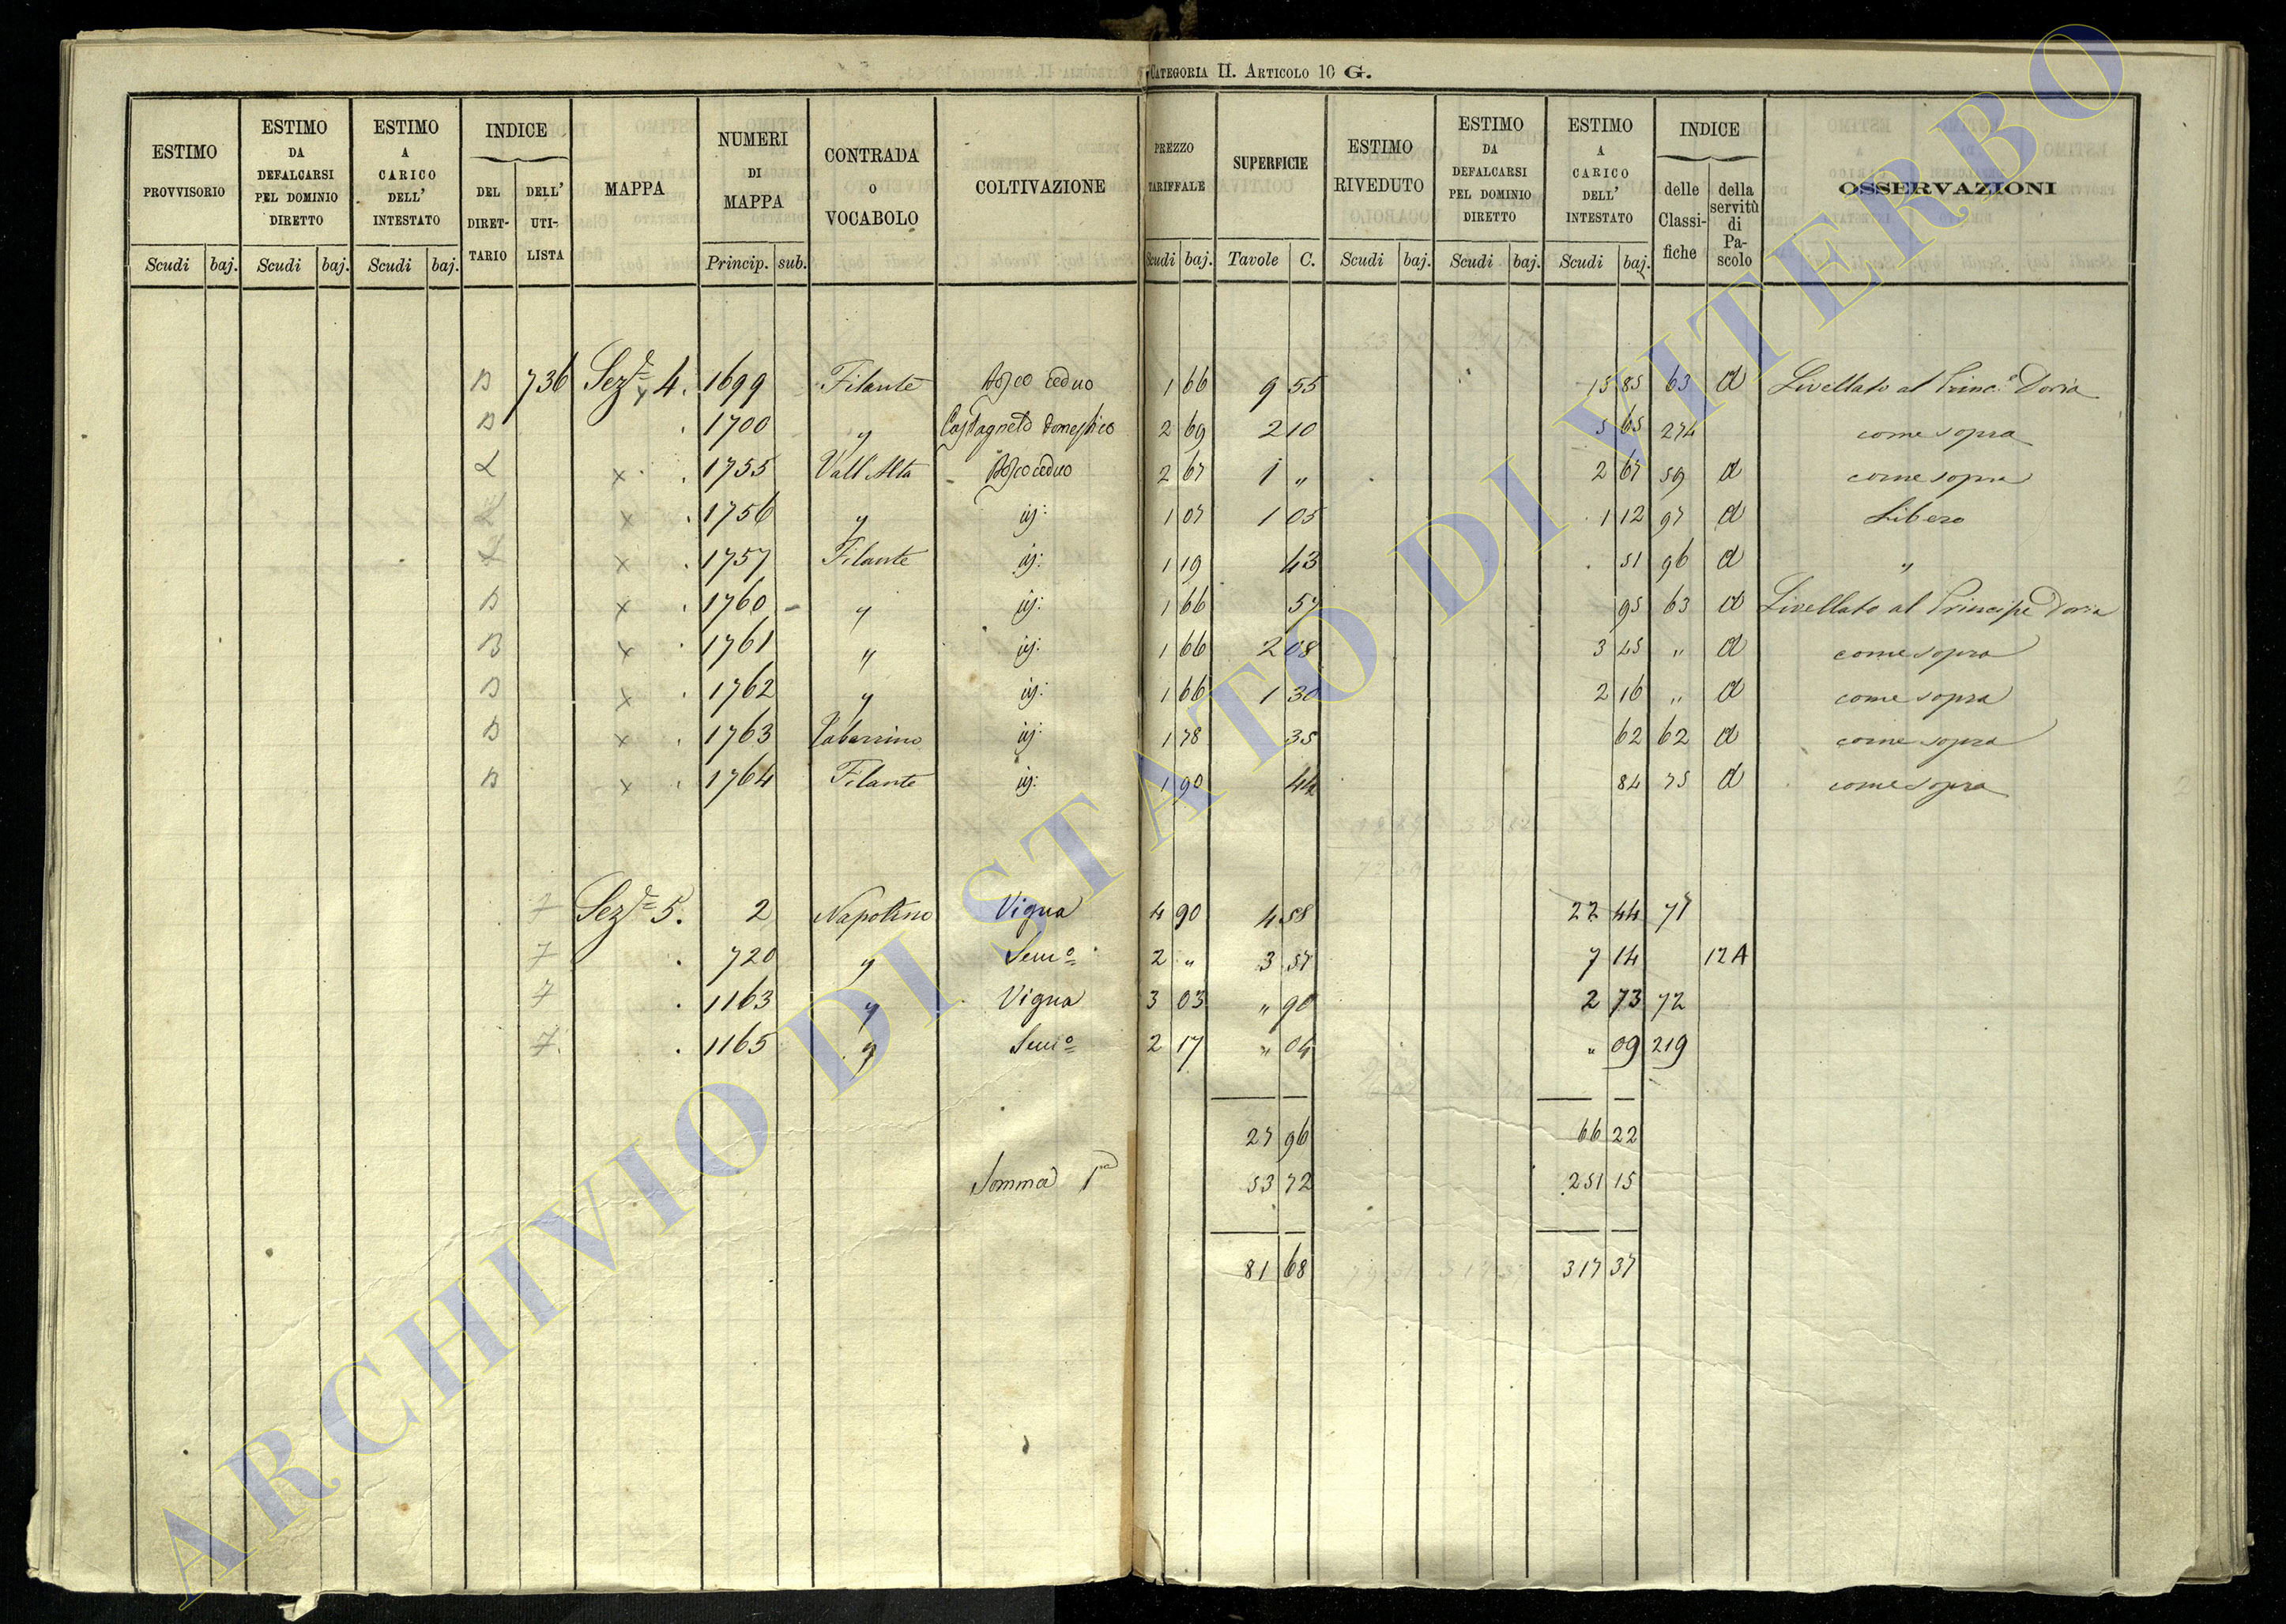 CATEGORIA II. ARTICOLO 10 G.
ESTIMO PROVVISORIO Scudi baj.
ESTIMO DA DEFALCARSI PEL DOMINIO DIRETTO Scudi baj.
ESTIMO A CARICO DELL' INTESTATO Scudi baj.
INDICE DEL DIRET-TARIO DELL' UTI-LISTA
MAPPA
NUMERI DI MAPPA Princip. sub.
CONTRADA O VOCABOLO
COLTIVAZIONE
PREZZO TARIFFALE Scudi baj.
SUPERFICIE Tavole C.
ESTIMO RIVEDUTO Scudi baj.
ESTIMO DA DEFALCARSI PEL DOMINIO DIRETTO Scudi baj.
ESTIMO A CARICO DELL' INTESTATO Scudi baj.
INDICE delle Classi-fiche della servitù di Pa-scolo
OSSERVAZIONI
B 736 Sez.e 4. x 1699 Filante Bosco ceduo 1 66 9 55 15 85 63 a Livellato al Princ.e Doria
B 1700 " Castagneto domestico 2 69 2 10 5 65 274 come sopra
L x 1755 Vall'Alta Bosco ceduo 2 67 1 " 2 67 59 a come sopra
L x 1756 " id: 1 07 1 05 1 12 97 a Libero
x 1757 Filante id: 1 19 43 51 96 a "
B x 1760 " id: 1 66 57 95 63 a Livellato al Principe Doria
B x 1761 " id: 1 66 2 08 3 45 " a come sopra
B x 1762 " id: 1 66 1 30 2 16 " a come sopra
B x 1763 id: 1 78 35 62 62 a come sopra
B x 1764 Filante id: 1 90 44 84 75 a come sopra
7 Sez.e 5. 2 Napolino Vigna 4 90 4 58 22 44 71
7 720 " Sem.o 2 " 3 57 7 14 12A
7 1163 " Vigna 3 03 " 90 2 73 72
7 1165 " Sem.o 2 17 " 04 " 09 219
27 96 66 22
Somma 53 72 251 15
81 68 317 37
ARCHIVIO DI STATO DI VITERBO